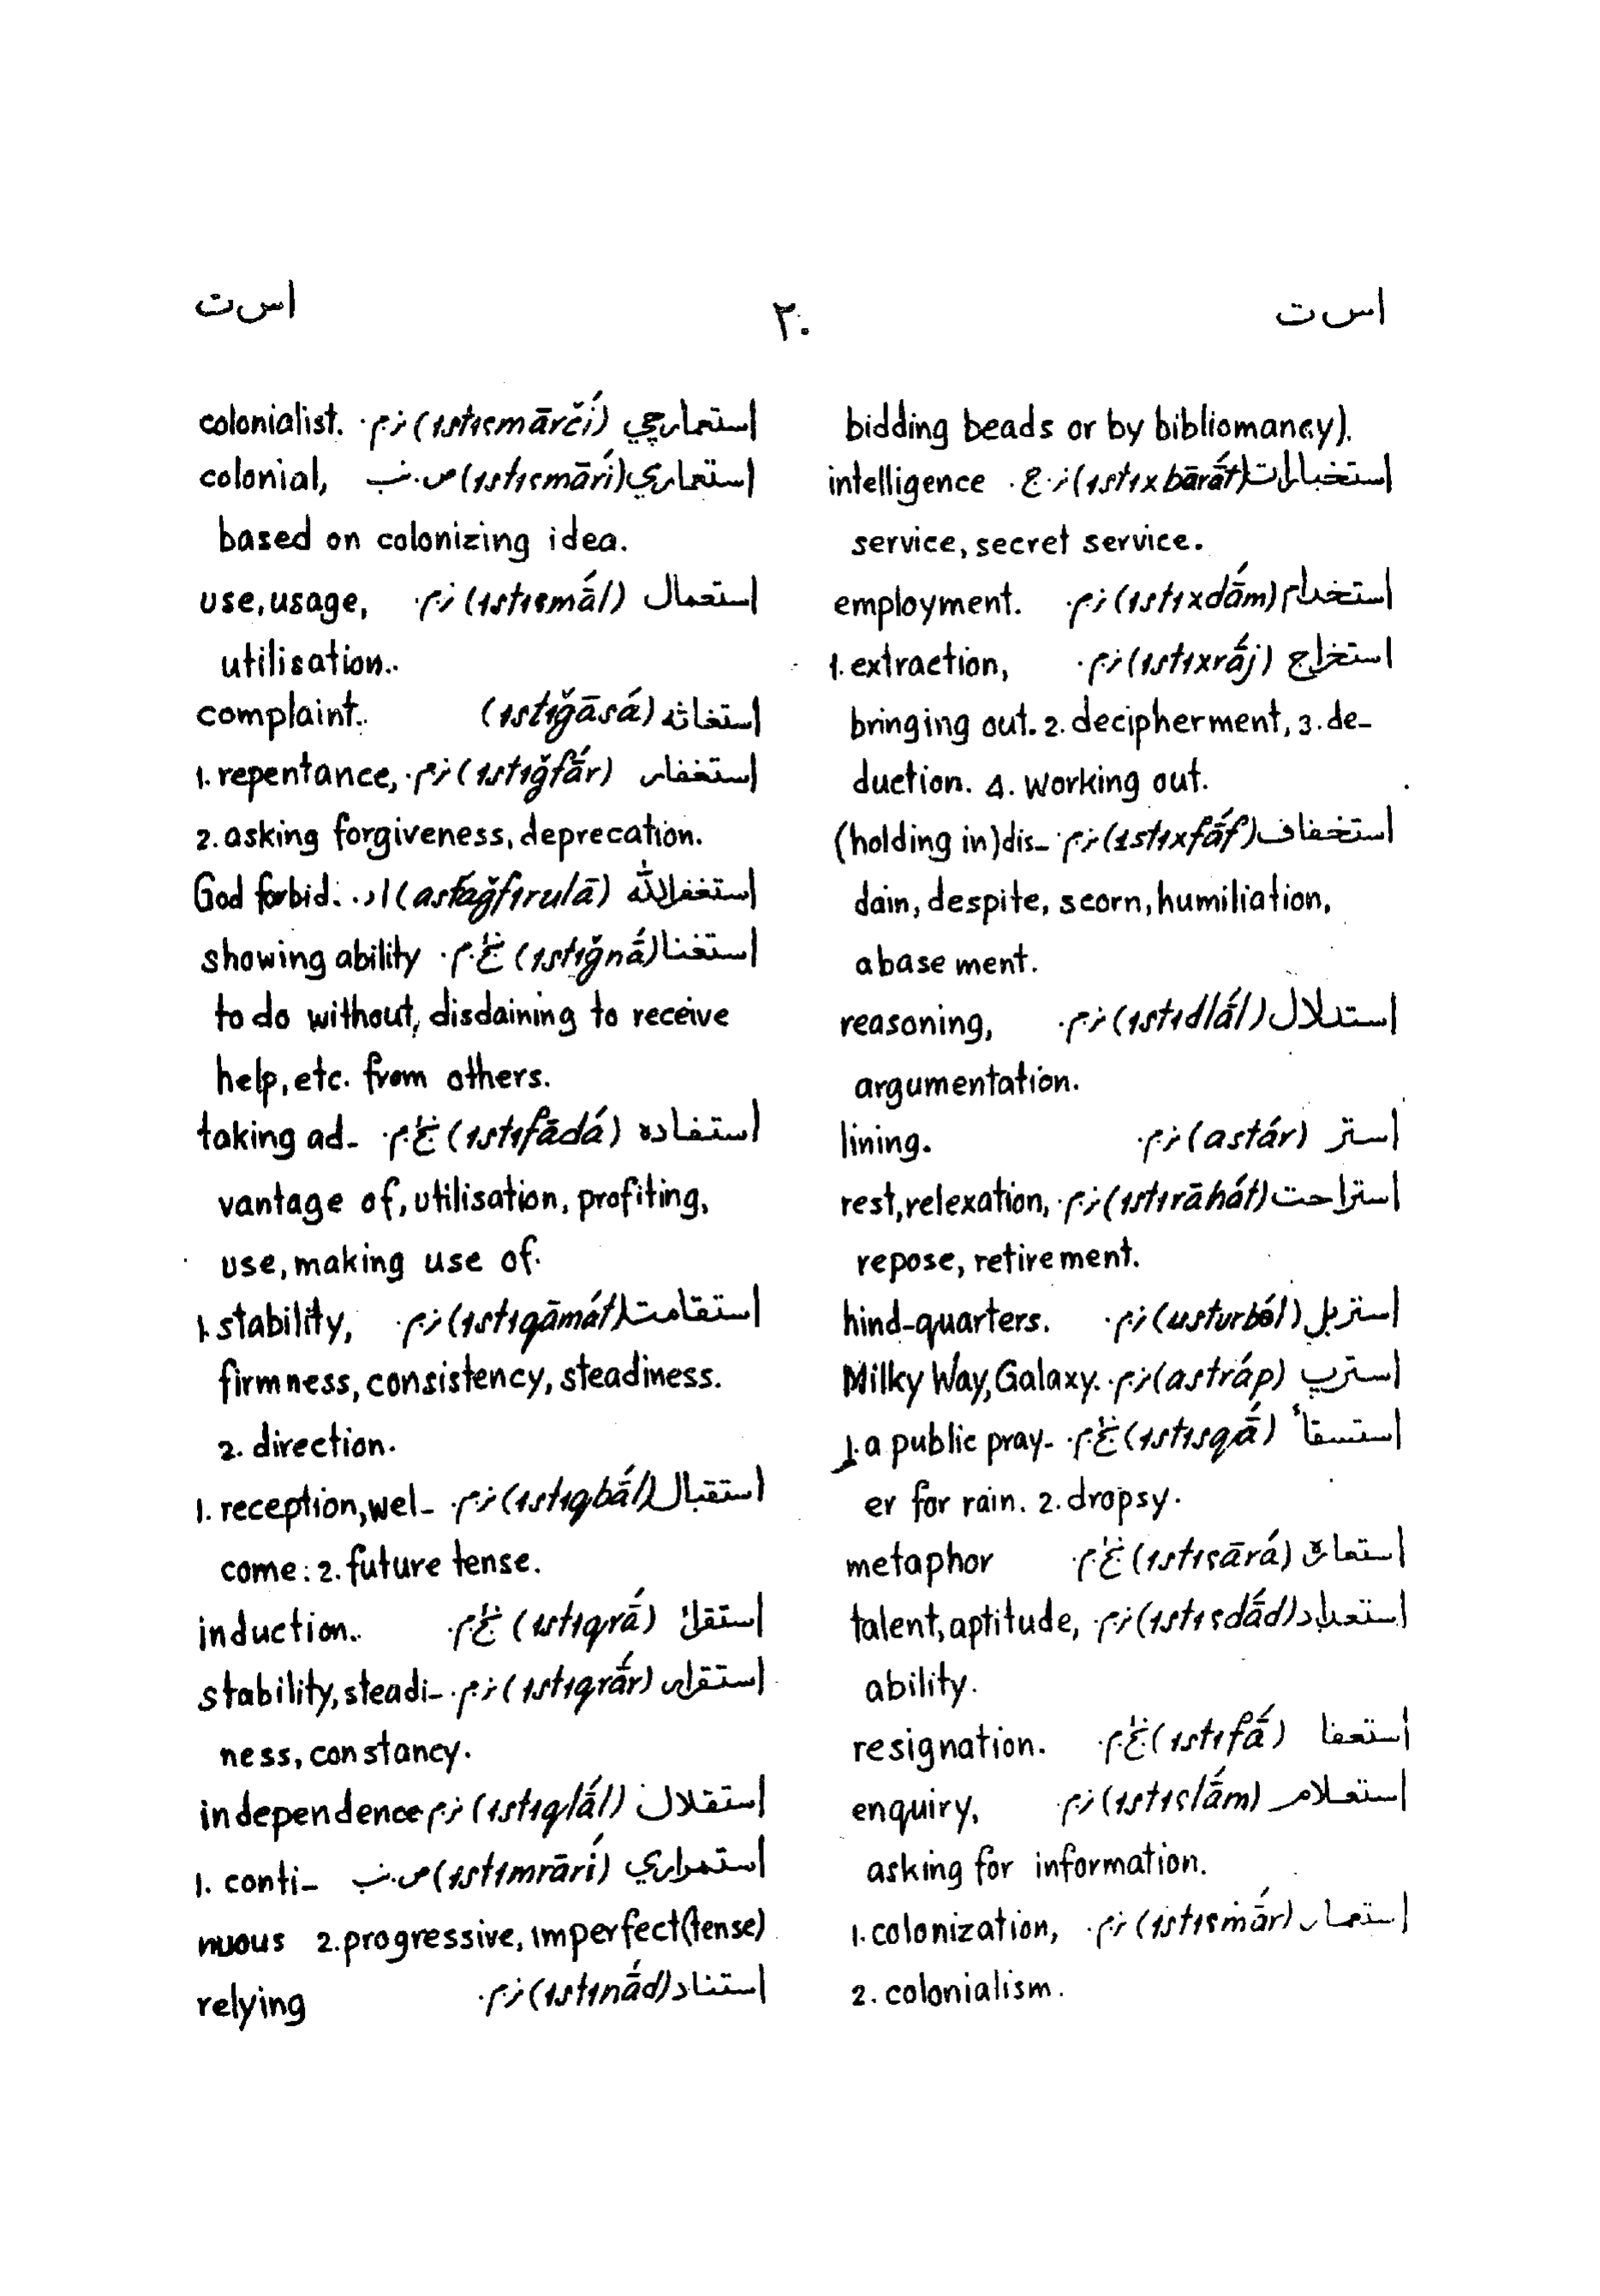 اس‌ت ٢٠ اس‌ت
bidding beads or by bibliomancy).
استخبارات (ıstıxbārā́t) ز.ع. intelligence
service, secret service.
استخدام (ıstıxdā́m) ز.م. employment.
استخراج (ıstıxrā́j) ز.م. 1. extraction,
bringing out. 2. decipherment, 3. de-
duction. 4. working out.
استخفاف (ıstıxfā́f) ز.م. (holding in) dis-
dain, despite, scorn, humiliation,
abasement.
استدلال (ıstıdlā́l) ز.م. reasoning,
argumentation.
استر (astár) ز.م. lining.
استراحت (ıstırāhát) ز.م. rest, relexation,
repose, retirement.
استربل (usturból) ز.م. hind-quarters.
استرپ (astráp) ز.م. Milky Way, Galaxy.
استسقأ (ıstısqā́) ځ.م. 1. a public pray-
er for rain. 2. dropsy.
استعاره (ıstısārá) ځ.م. metaphor
استعداد (ıstısdā́d) ز.م. talent, aptitude,
ability.
استعفا (ıstıfā́) ځ.م. resignation.
استعلام (ıstıslā́m) ز.م. enquiry,
asking for information.
استعمار (ıstısmā́r) ز.م. 1. colonization,
2. colonialism.
استعمارچي (ıstısmārčí) ز.م. colonialist.
استعماري (ıstısmārí) ص.نب colonial,
based on colonizing idea.
استعمال (ıstısmā́l) ز.م. use, usage,
utilisation.
استغاثه (ıstığāsá) complaint.
استغفار (ıstığfā́r) ز.م. 1. repentance,
2. asking forgiveness, deprecation.
استغفرالله (astáğfırulā) اد. God forbid.
استغنا (ıstığnā́) ځ.م. showing ability
to do without, disdaining to receive
help, etc. from others.
استفاده (ıstıfādá) ځ.م. taking ad-
vantage of, utilisation, profiting,
use, making use of.
استقامت (ıstıqāmát) ز.م. 1. stability,
firmness, consistency, steadiness.
2. direction.
استقبال (ıstıqbā́l) ز.م. 1. reception, wel-
come: 2. future tense.
استقرأ (ıstıqrā́) ځ.م. induction.
استقرار (ıstıqrā́r) ز.م. stability, steadi-
ness, constancy.
استقلال (ıstıqlā́l) ز.م independence
استمراري (ıstımrārí) ص.نب 1. conti-
nuous 2. progressive, imperfect (tense)
استناد (ıstınā́d) ز.م. relying